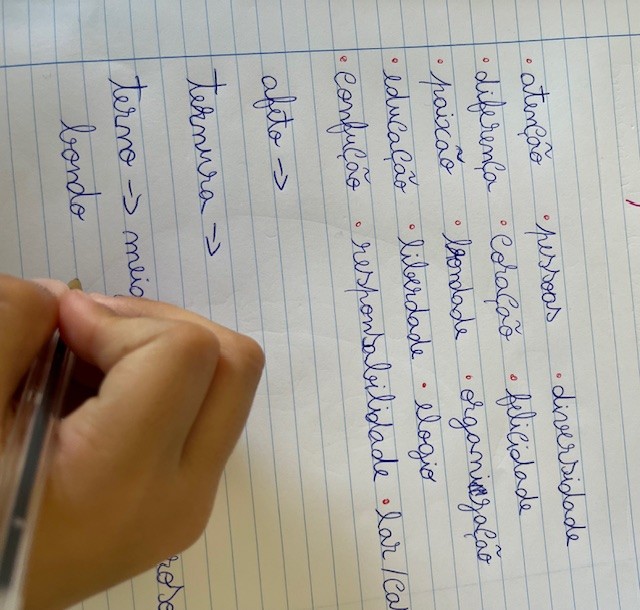 • atenção • pessoas • diversidade
• diferença • coração • felicidade
• paixão • bondade • organização
• educação • liberdade • elogio
• confução • responsabilidade • lar/ca
afeto ->
ternura ->
terno -> meig
bondo